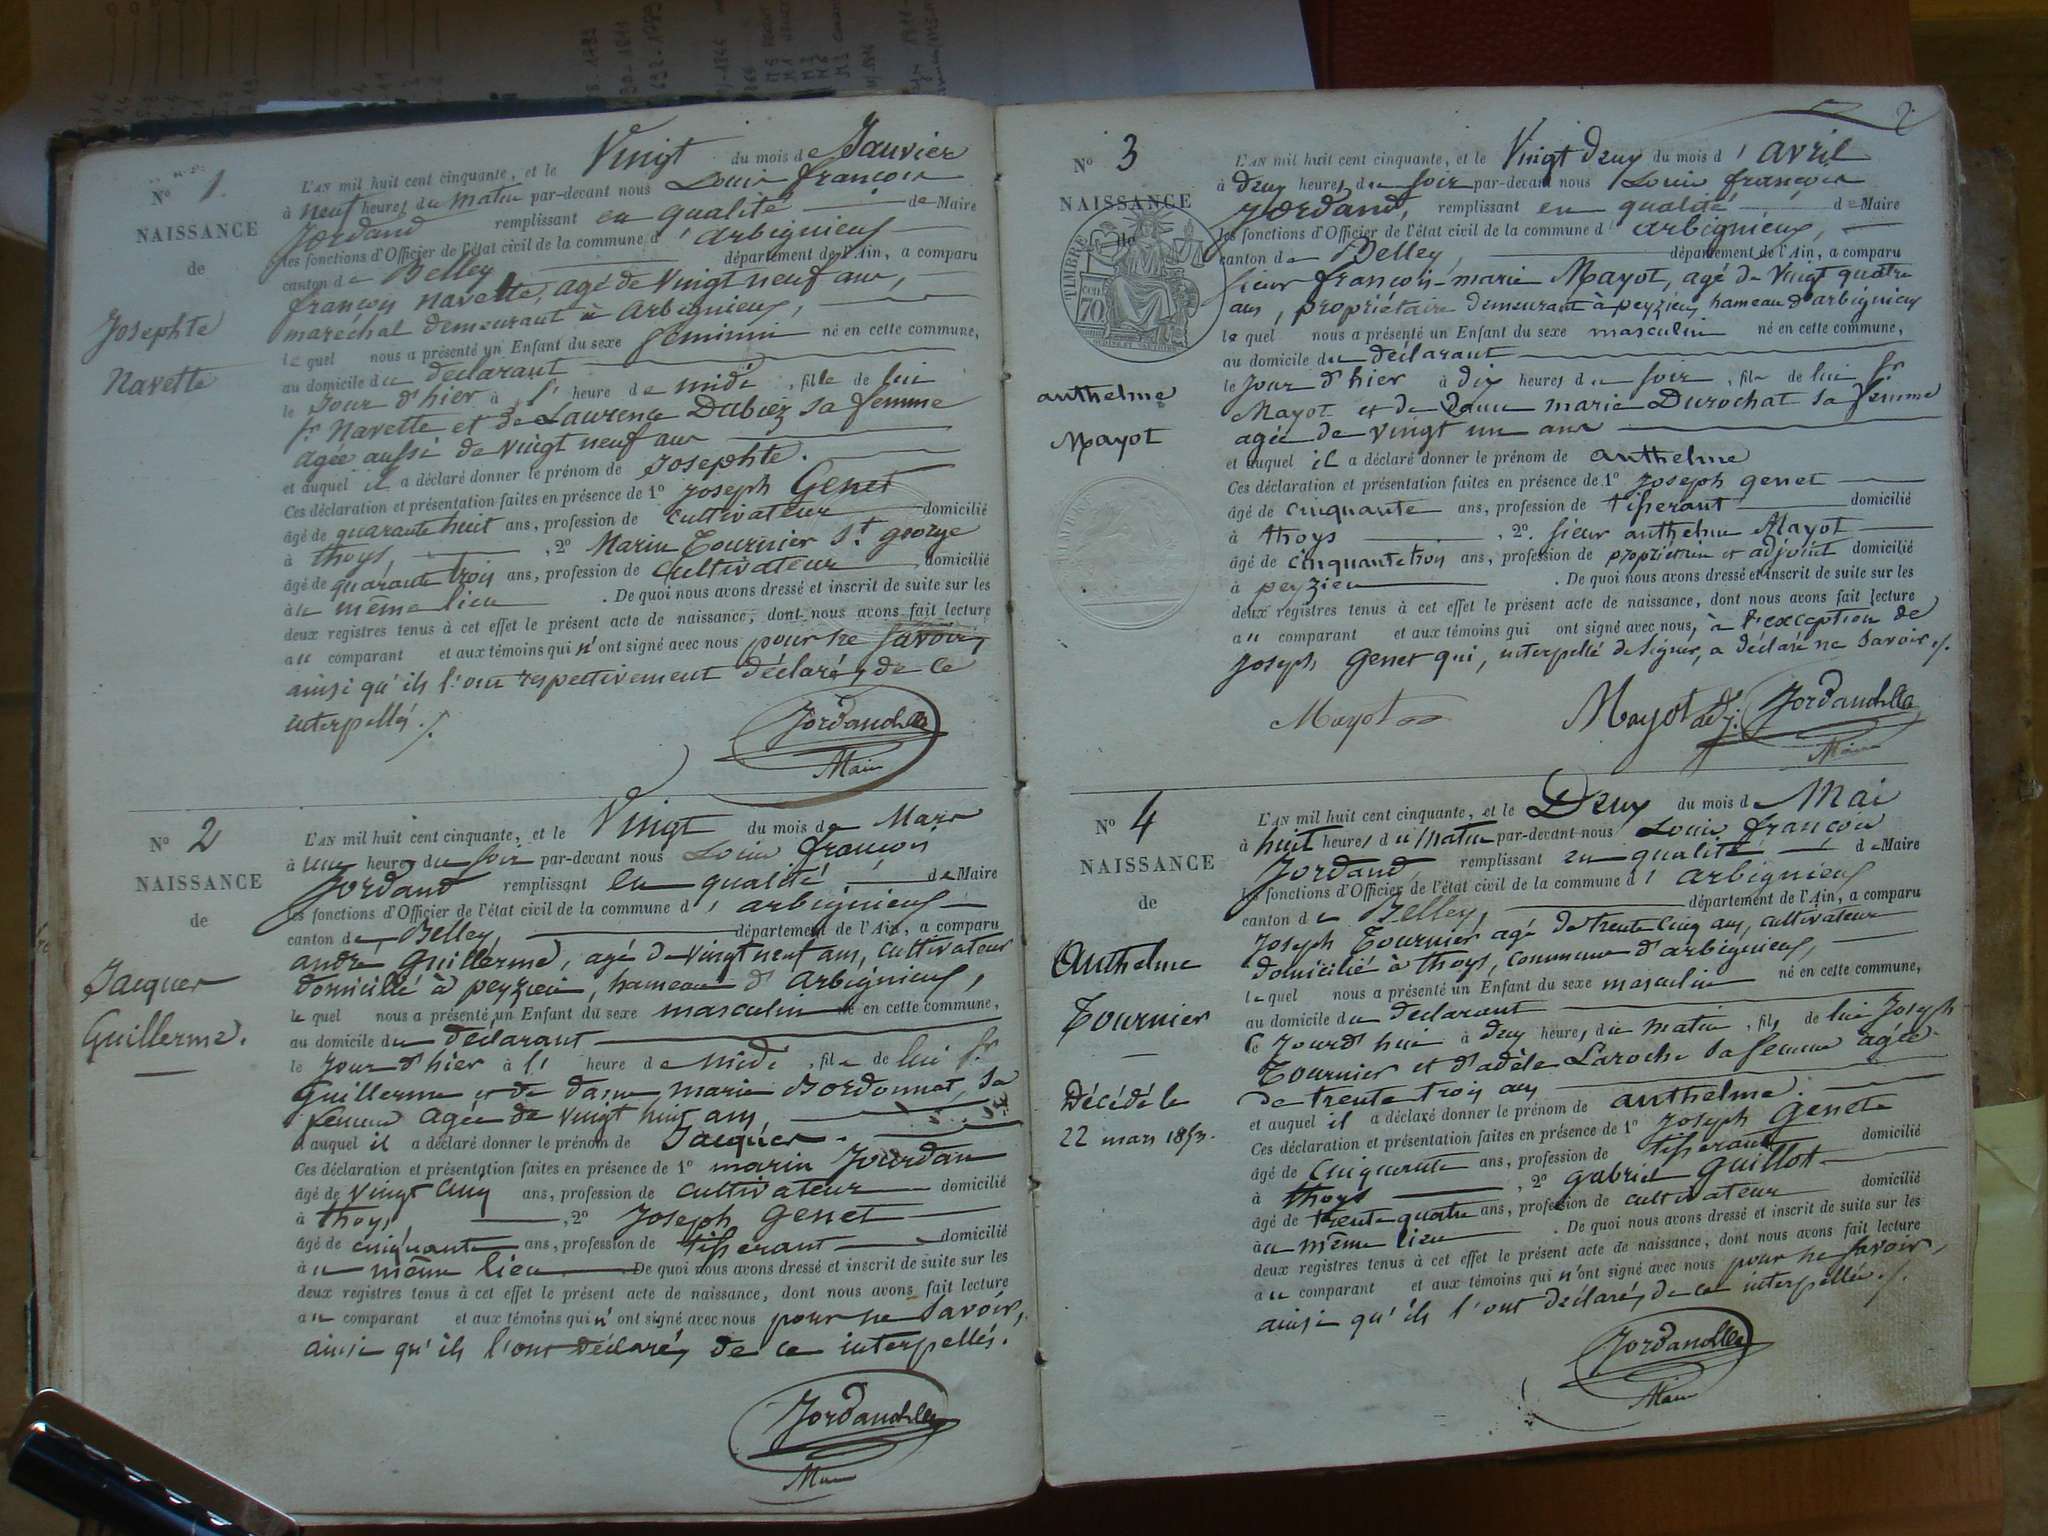 N° 1.
NAISSANCE
de
Josephte
Navette
L'AN mil huit cent cinquante, et le Vingt du mois de Janvier
à neuf heures du matin par-devant nous Louis françois
Jordand remplissant en qualité de Maire
les fonctions d'Officier de l'état civil de la commune d'arbignieu
canton de Belley département de l'Ain, a comparu
françois Navette, agé de Vingt neuf ans,
maréchal demeurant à Arbignieu,
lequel nous a présenté un Enfant du sexe feminin né en cette commune,
au domicile du déclarant
le Jour d'hier à l'heure de midi, fille de lui
sr Navette et de Laurence Dubiez sa femme
agée aussi de vingt neuf ans
et auquel il a déclaré donner le prénom de Josephte.
Ces déclaration et présentation faites en présence de 1° Joseph Genet
âgé de quarante huit ans, profession de cultivateur domicilié
à thoys, 2° Marin Tournier St. george
âgé de quarante trois ans, profession de cultivateur domicilié
au même lieu. De quoi nous avons dressé et inscrit de suite sur les
deux registres tenus à cet effet le présent acte de naissance, dont nous avons fait lecture
au comparant et aux témoins qui n'ont signé avec nous pour ne savoir,
ainsi qu'ils l'ont respectivement déclaré, de ce
interpellés./.
Maire
N° 2
NAISSANCE
de
Jacques
Guillerme.
L'AN mil huit cent cinquante, et le Vingt du mois de Mars
à une heure du soir par-devant nous Louis françois
Jordand remplissant en qualité de Maire
les fonctions d'Officier de l'état civil de la commune d'arbignieu
canton de Belley département de l'Ain, a comparu
andré Guillerme, agé de vingt neuf ans, cultivateur
domicilié à peyzieu, hameau d'Arbignieu,
lequel nous a présenté un Enfant du sexe masculin né en cette commune,
au domicile du déclarant
le Jour d'hier à l'heure de Midi, fils de lui sr
Guillerme et de dame marie Bordonnat, sa
femme agée de vingt huit ans
auquel il a déclaré donner le prénom de Jacques.
Ces déclaration et présentation faites en présence de 1° marin Jourdan
âgé de vingt cinq ans, profession de cultivateur domicilié
à thoys, 2° Joseph Genet
âgé de cinquante ans, profession de tisserant domicilié
au même lieu. De quoi nous avons dressé et inscrit de suite sur les
deux registres tenus à cet effet le présent acte de naissance, dont nous avons fait lecture
au comparant et aux témoins qui n'ont signé avec nous pour ne Savoir,
ainsi qu'ils l'ont déclaré, de ce interpellés.
Maire
2.
N° 3
NAISSANCE
de
TIMBRE
70
anthelme
Mayot
L'AN mil huit cent cinquante, et le Vingt deux du mois d'avril
à deux heures du soir par-devant nous Louis françois
Jordand, remplissant en qualité de Maire
les fonctions d'Officier de l'état civil de la commune d'arbignieu,
canton de Belley, département de l'Ain, a comparu
sieur françois-marie Mayot, agé de vingt quatre
ans, propriétaire demeurant à peyzieu, hameau d'arbignieu
lequel nous a présenté un Enfant du sexe masculin né en cette commune,
au domicile du déclarant
le Jour d'hier à dix heures du soir, fils de lui sr
Mayot et de dame marie Durochat sa femme
agée de vingt un ans
et auquel il a déclaré donner le prénom de anthelme
Ces déclaration et présentation faites en présence de 1° Joseph genet
âgé de cinquante ans, profession de tisserant domicilié
à thoys, 2° sieur anthelme Mayot
âgé de cinquante trois ans, profession de propriétaire et adjoint domicilié
à peyzieu. De quoi nous avons dressé et inscrit de suite sur les
deux registres tenus à cet effet le présent acte de naissance, dont nous avons fait lecture
au comparant et aux témoins qui ont signé avec nous, à l'exception de
Joseph Genet qui, interpellé de signer, a déclaré ne savoir./.
Mayot Mayot adj.
Maire
N° 4
NAISSANCE
de
Anthelme
Tournier
Décédé le
22 mars 1853.
L'AN mil huit cent cinquante, et le Deux du mois de Mai
à huit heures du matin par-devant nous Louis françois
Jordand, remplissant en qualité de Maire
les fonctions d'Officier de l'état civil de la commune d'arbignieu
canton de Belley, département de l'Ain, a comparu
Joseph Tournier agé de trente cinq ans, cultivateur
domicilié à thoys, commune d'arbignieu,
lequel nous a présenté un Enfant du sexe masculin né en cette commune,
au domicile du déclarant
le Jourd'hui à deux heures du matin, fils de lui Joseph
Tournier et d'adèle Laroche sa femme agée
de trente trois ans
et auquel il a déclaré donner le prénom de anthelme.
Ces déclaration et présentation faites en présence de 1° Joseph Genet
âgé de cinquante ans, profession de tisserant domicilié
à thoys, 2° gabriel Guillot
âgé de trente quatre ans, profession de cultivateur domicilié
au même lieu. De quoi nous avons dressé et inscrit de suite sur les
deux registres tenus à cet effet le présent acte de naissance, dont nous avons fait lecture
au comparant et aux témoins qui n'ont signé avec nous pour ne savoir,
ainsi qu'ils l'ont déclaré, de ce interpellés./.
Maire